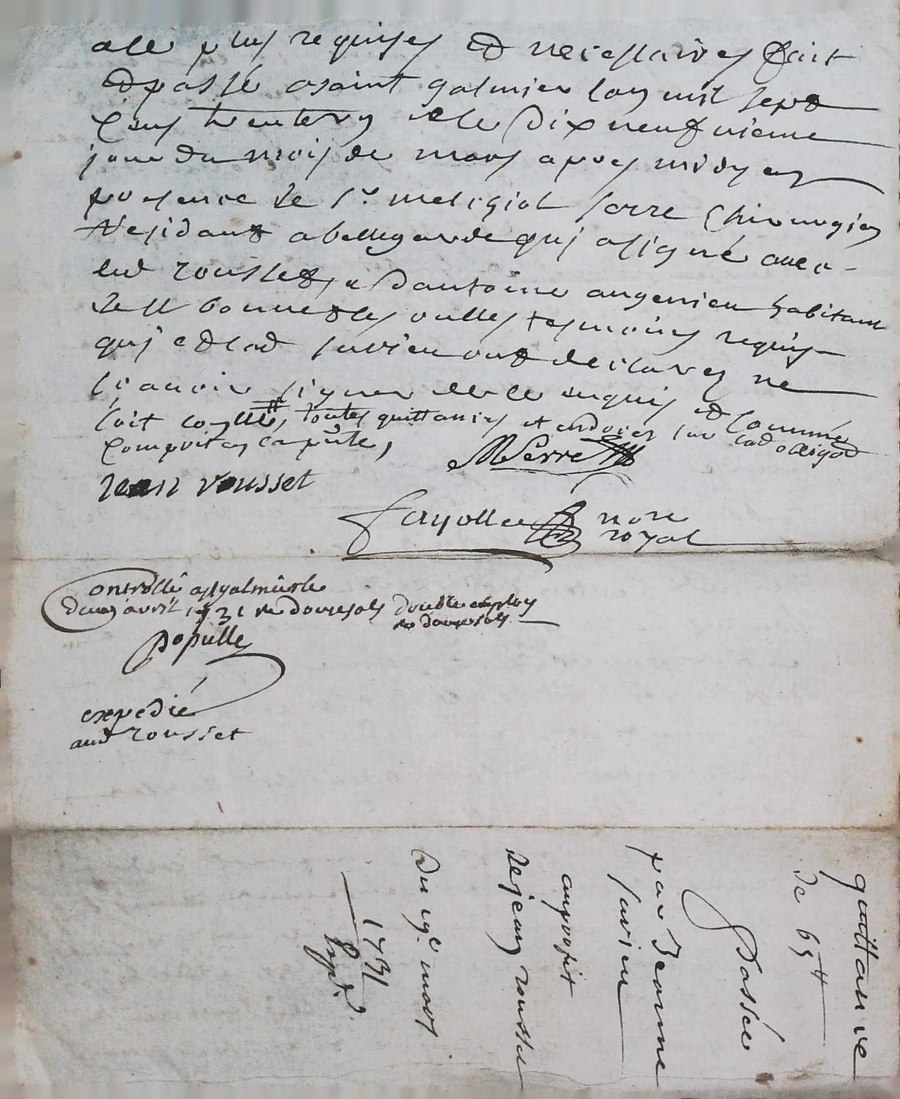 ale plus requises et necessaires fait
et passé a saint galmier lan mil sept
cens trente un et le dix neufvieme
jour du mois de mars apres midy en
presence de Sr. melchiol serre Chirurgien
residant a bellegarde qui a signé avec
led rousset, et d'antoine augenieu habitant
de st bonnet les oulles tesmoins requis
qui et lad savieu ont declarez ne
scavoir signer de ce enquis et sommé
soit collé, toutes quittances et endossés sur lad obligaõ
comprises
M Serre
jean rousset
fayolle nore
royal
Controllé a st galmier le
deux avril 1731 R douze sols double employ
R douze sols
populle
expedié
aud rousset
quittance
de 65 ₶
Passée
par Jeanne
savieu
au profit
de jean rousset
Du 19e mars
1731